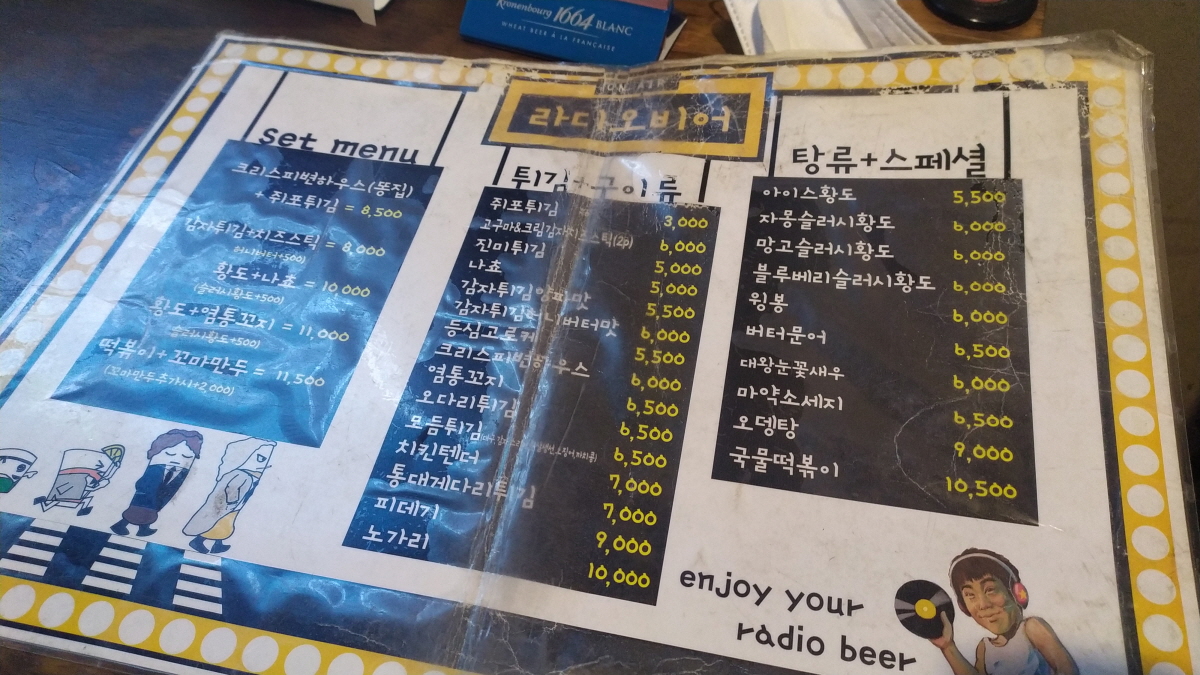 Kronenbourg 1664 BLANC
WHEAT BEER À LA FRANÇAISE
ON AIR
라디오비어
set menu
크리스피변하우스(똥집)
+ 쥐포튀김 = 8,500
감자튀김+치즈스틱 = 8,000
허니버터+500)
황도+나쵸 = 10,000
(슬러시황도+500)
황도+염통꼬지 = 11,000
슬러시황도+500)
떡볶이+꼬마만두 = 11,500
(꼬마만두추가시+2,000)
튀김+구이류
쥐포튀김 3,000
고구마&크림감자치즈스틱(2p) 6,000
진미튀김 5,000
나쵸 5,000
감자튀김양파맛 5,500
감자튀김허니버터맛 6,000
등심고로케 5,500
크리스피변하우스 6,000
염통꼬지 6,500
오다리튀김 6,500
모듬튀김 6,500
치킨텐더 7,000
통대게다리튀김 7,000
피데기 9,000
노가리 10,000
탕류+스페셜
아이스황도 5,500
자몽슬러시황도 6,000
망고슬러시황도 6,000
블루베리슬러시황도 6,000
윙봉 6,000
버터문어 6,500
대왕눈꽃새우 6,000
마약소세지 6,500
오뎅탕 9,000
국물떡볶이 10,500
enjoy your
radio beer